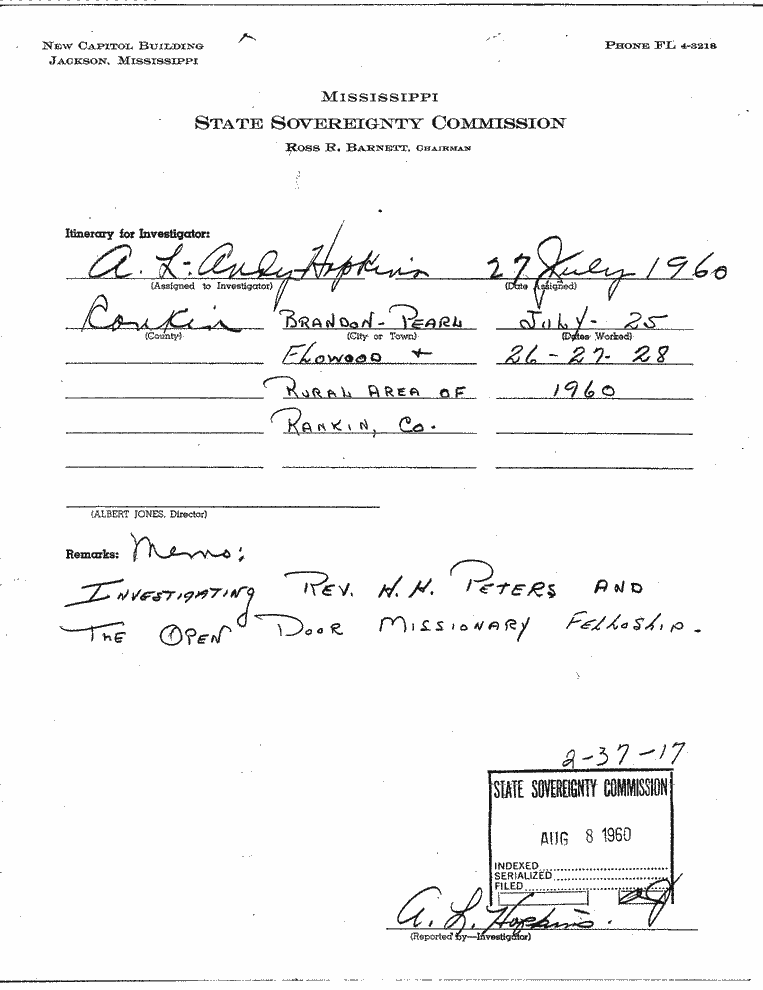 NEW CAPITOL BUILDING
JACKSON, MISSISSIPPI
PHONE FL 4-3218
MISSISSIPPI
STATE SOVEREIGNTY COMMISSION
ROSS R. BARNETT, CHAIRMAN
Itinerary for Investigator:
A. L. Andy Hopkins 27 July 1960
(Assigned to Investigator) (Date Assigned)
Rankin BRANDON - PEARL JULY - 25
(County) (City or Town) (Dates Worked)
FLOWOOD + 26 - 27 - 28
RURAL AREA OF 1960
RANKIN, Co.
(ALBERT JONES, Director)
Remarks: Memo:
INVESTIGATING REV. H. H. PETERS AND
THE OPEN DOOR MISSIONARY FELLOSHIP.
2-37-17
STATE SOVEREIGNTY COMMISSION
AUG 8 1960
INDEXED
SERIALIZED
FILED
A. L. Hopkins.
(Reported by—Investigator)